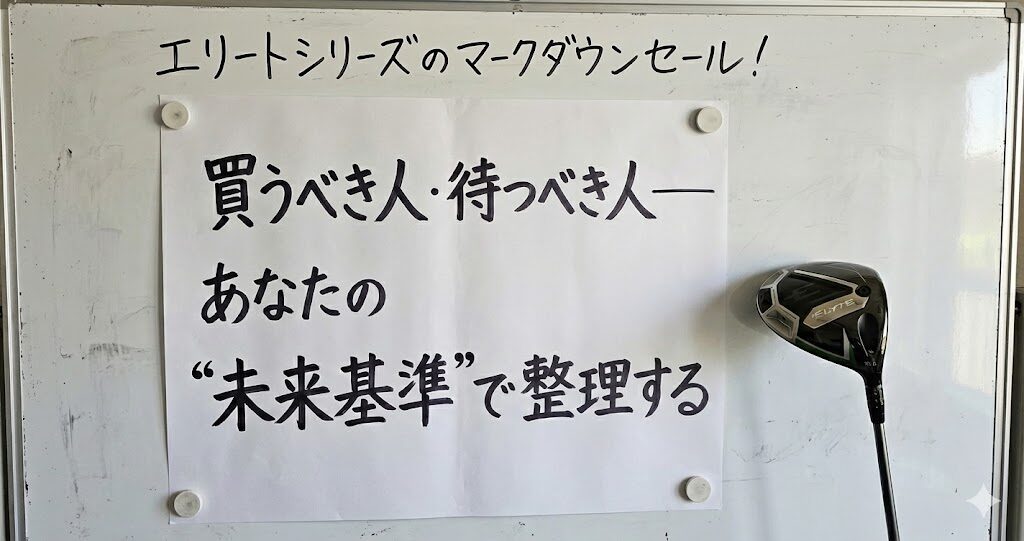 エリートシリーズのマークダウンセール!
買うべき人・待つべき人―
あなたの
“未来基準”で整理する
ELYTE